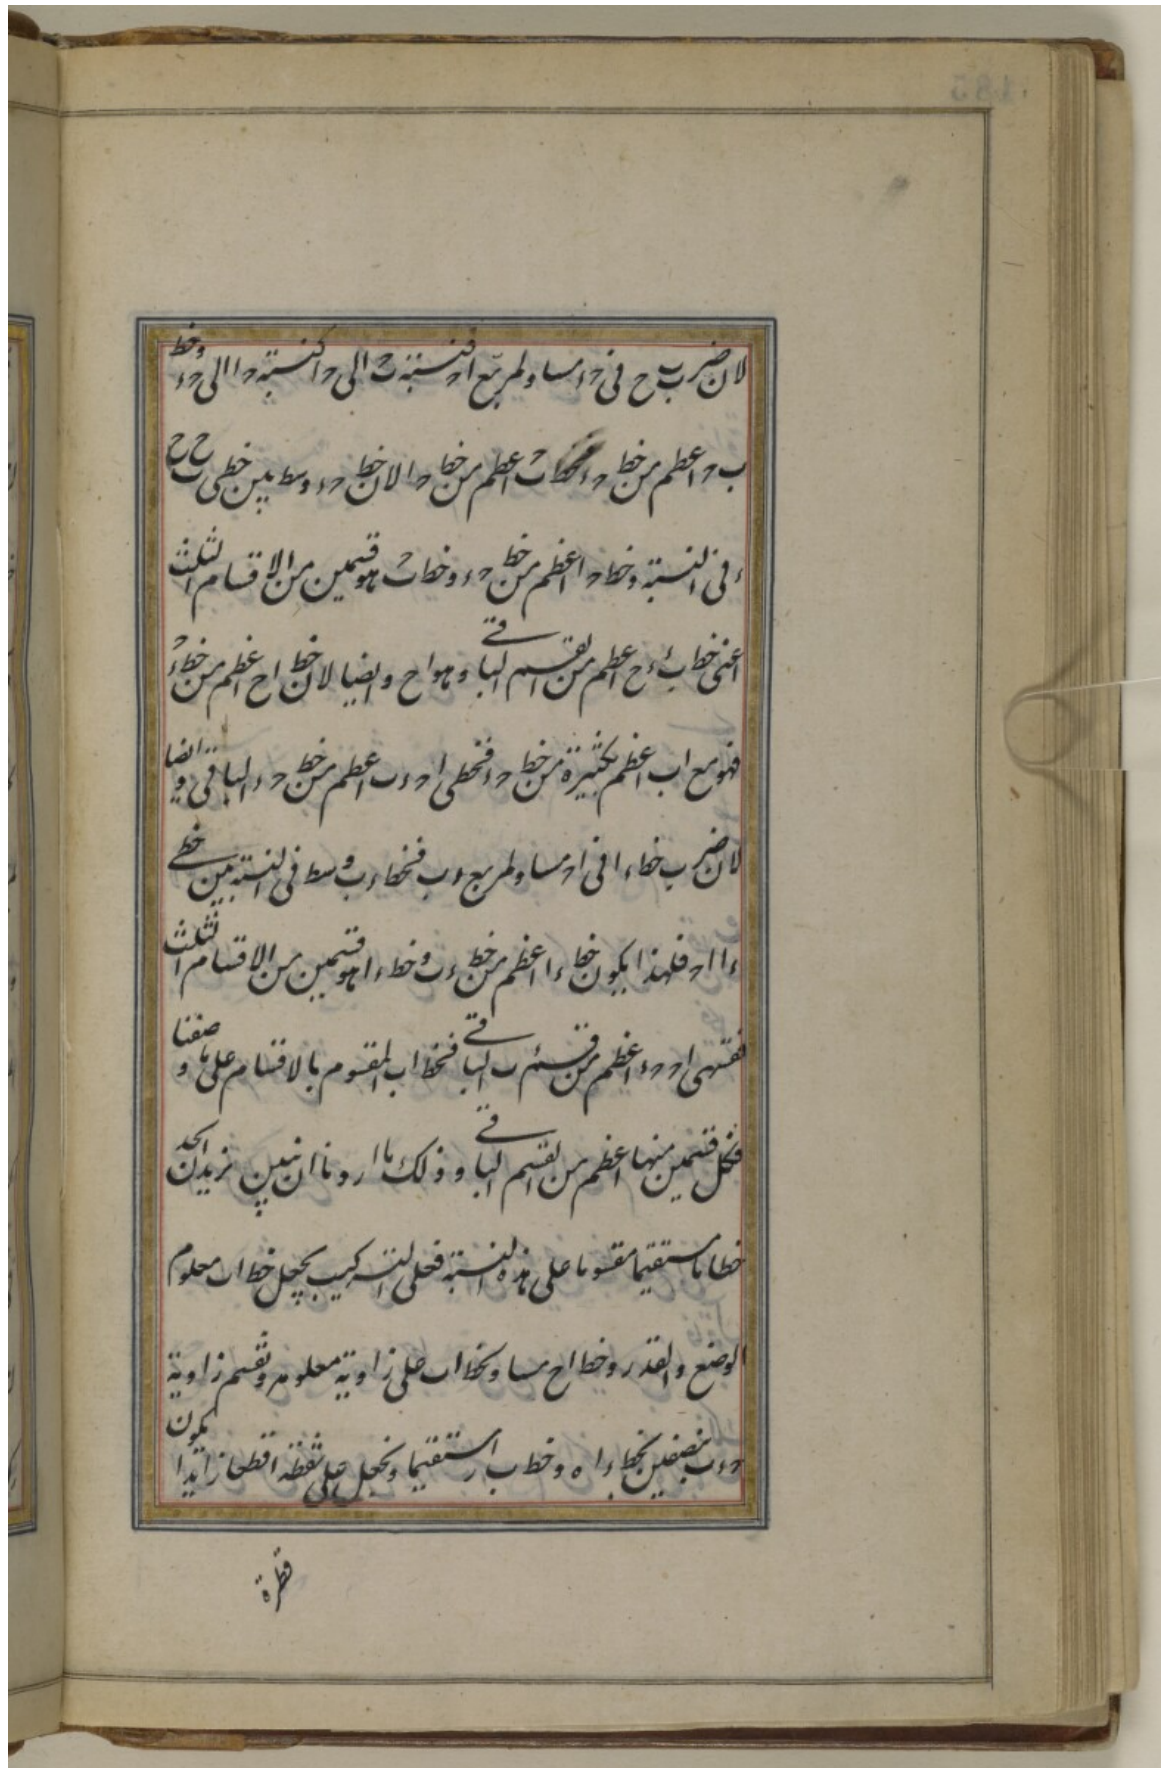 لان ضرب ب ح فى ح ء مساو لمربع ا ح فنسبة ب ح الى ح ا كنسبة ح ا الى ح ء وخط
ب ح اعظم من خط ح ء فخط ب ح اعظم من خط ح ا لان خط ح ء وسط بين خطى ب ح ح
ء فى النسبة وخط ح ا اعظم من خط ح ء وخط ب ح هو قسمين من الاقسام الثلث
اعنى خطا ب ء ء ح اعظم من القسم الباقى وهو ا ح وايضا لان خط ا ح اعظم من خط ح ء
فهو مع ا ب اعظم بكثيرة من خط ح ء فخطى ا ح ء ب اعظم من خط ح ء الباقى وايضا
لان ضرب خط ء ا فى ا ح مساو لمربع ء ب فخط ء ب وسط فى النسبة بين خطى
ء ا ا ح فلهذا يكون خط ء ا اعظم من خط ء ب وخط ء ا هو قسمين من الاقسام الثلث
فقسمى ا ح ح ء اعظم من قسم ء ب الباقى فخط ا ب المقسوم بالاقسام على ما وصفنا
فكل قسمين منها اعظم من القسم الباقى وذلك ما اردنا ان نبين نريد ان نجد
خطا ما مستقيما مقسوما على هذه النسبة فعلى التركيب نجعل خط ا ب معلوم
الوضع والقدر وخط ا ح مساو لخط ا ب على زاوية معلومة ونقسم زاوية
ح ء ب بنصفين بخط ء ا ه وخط ب ر استقيما ونجعل على نقطة ا قطعا زائدا يكون
قطره